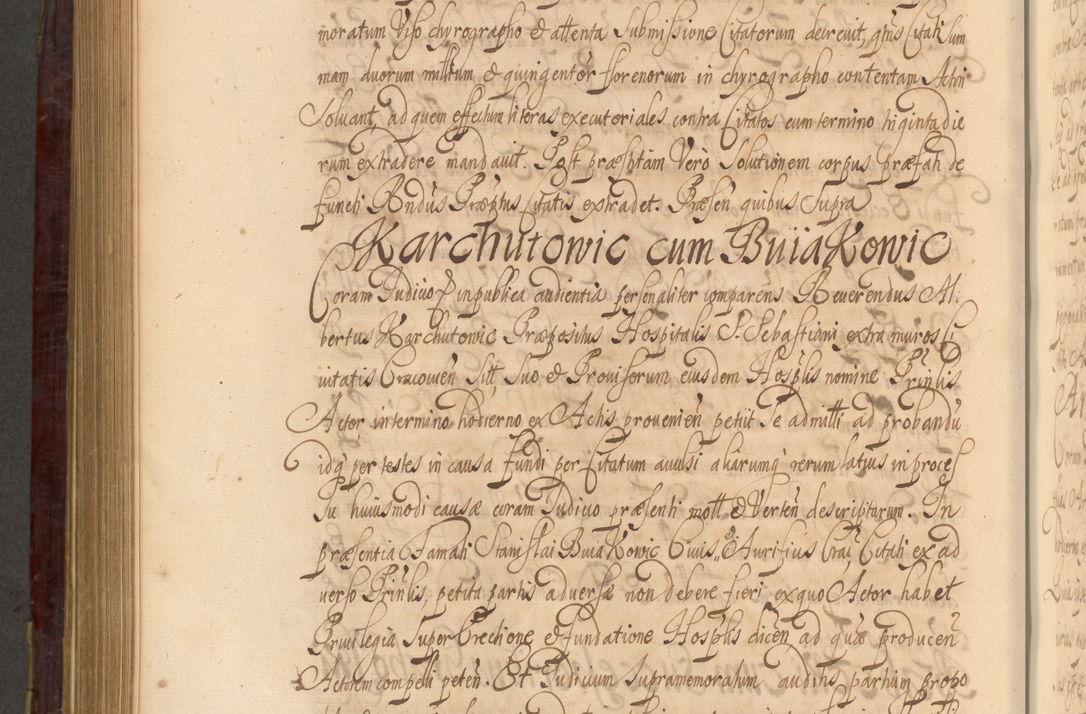 moratum Viso chyrographo et attenta Submissione Citatorum decrevit, qtñs Citati Sum
mam duorum millium et quingentor̃ florenorum in chyrographo contentam Actri
Solvant, ad quem effectum literas executoriales contra Citatos cum termino triginta die
rum extradere mandavit. Post præsctitam Vero Solutionem corpus præfati de
functi Rndus Præptus Citatis extradet. Præsen quibus Supra
Karchutowic cum BuiaKowic
Coram Judicio in publica audientia personaliter comparens Reverendus Al:
bertus Karchutowic Præpositus Hospitalis S. Sebastiani extra muros Ci
vitatis Cracovien Sitt, Suo et Provisorum eiusdem Hosplis nomine Prinlis
Actor in termino hodierno ex Actis provenien̄ petiit Se admitti ad probandū
idq per testes in causa fundi per Citatum avulsi aliarumq rerum latius in proces
Su huiusmodi causæ coram Judicio præsenti mott et Verten̄ descriptarum. In
præsentia Famati Stanislai BuiaKowic Civis et Aurifius Crac Citati ex ad
verso Prinlis, petita partis adversæ non debere fieri ex quo Actor habet
Privilegia Super Erectione et fundatione Hosplis dicen̄ ad quæ producen̄
Actorem compelli peten̄. Et Judicium Supramemoratum auditis partium propo